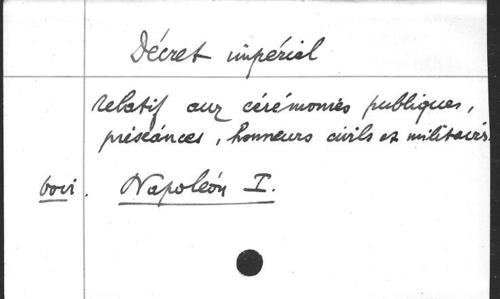 Décret impérial
relatif aux cérémonies publiques,
préséances, honneurs civils et militaires.
voir. Napoléon I.